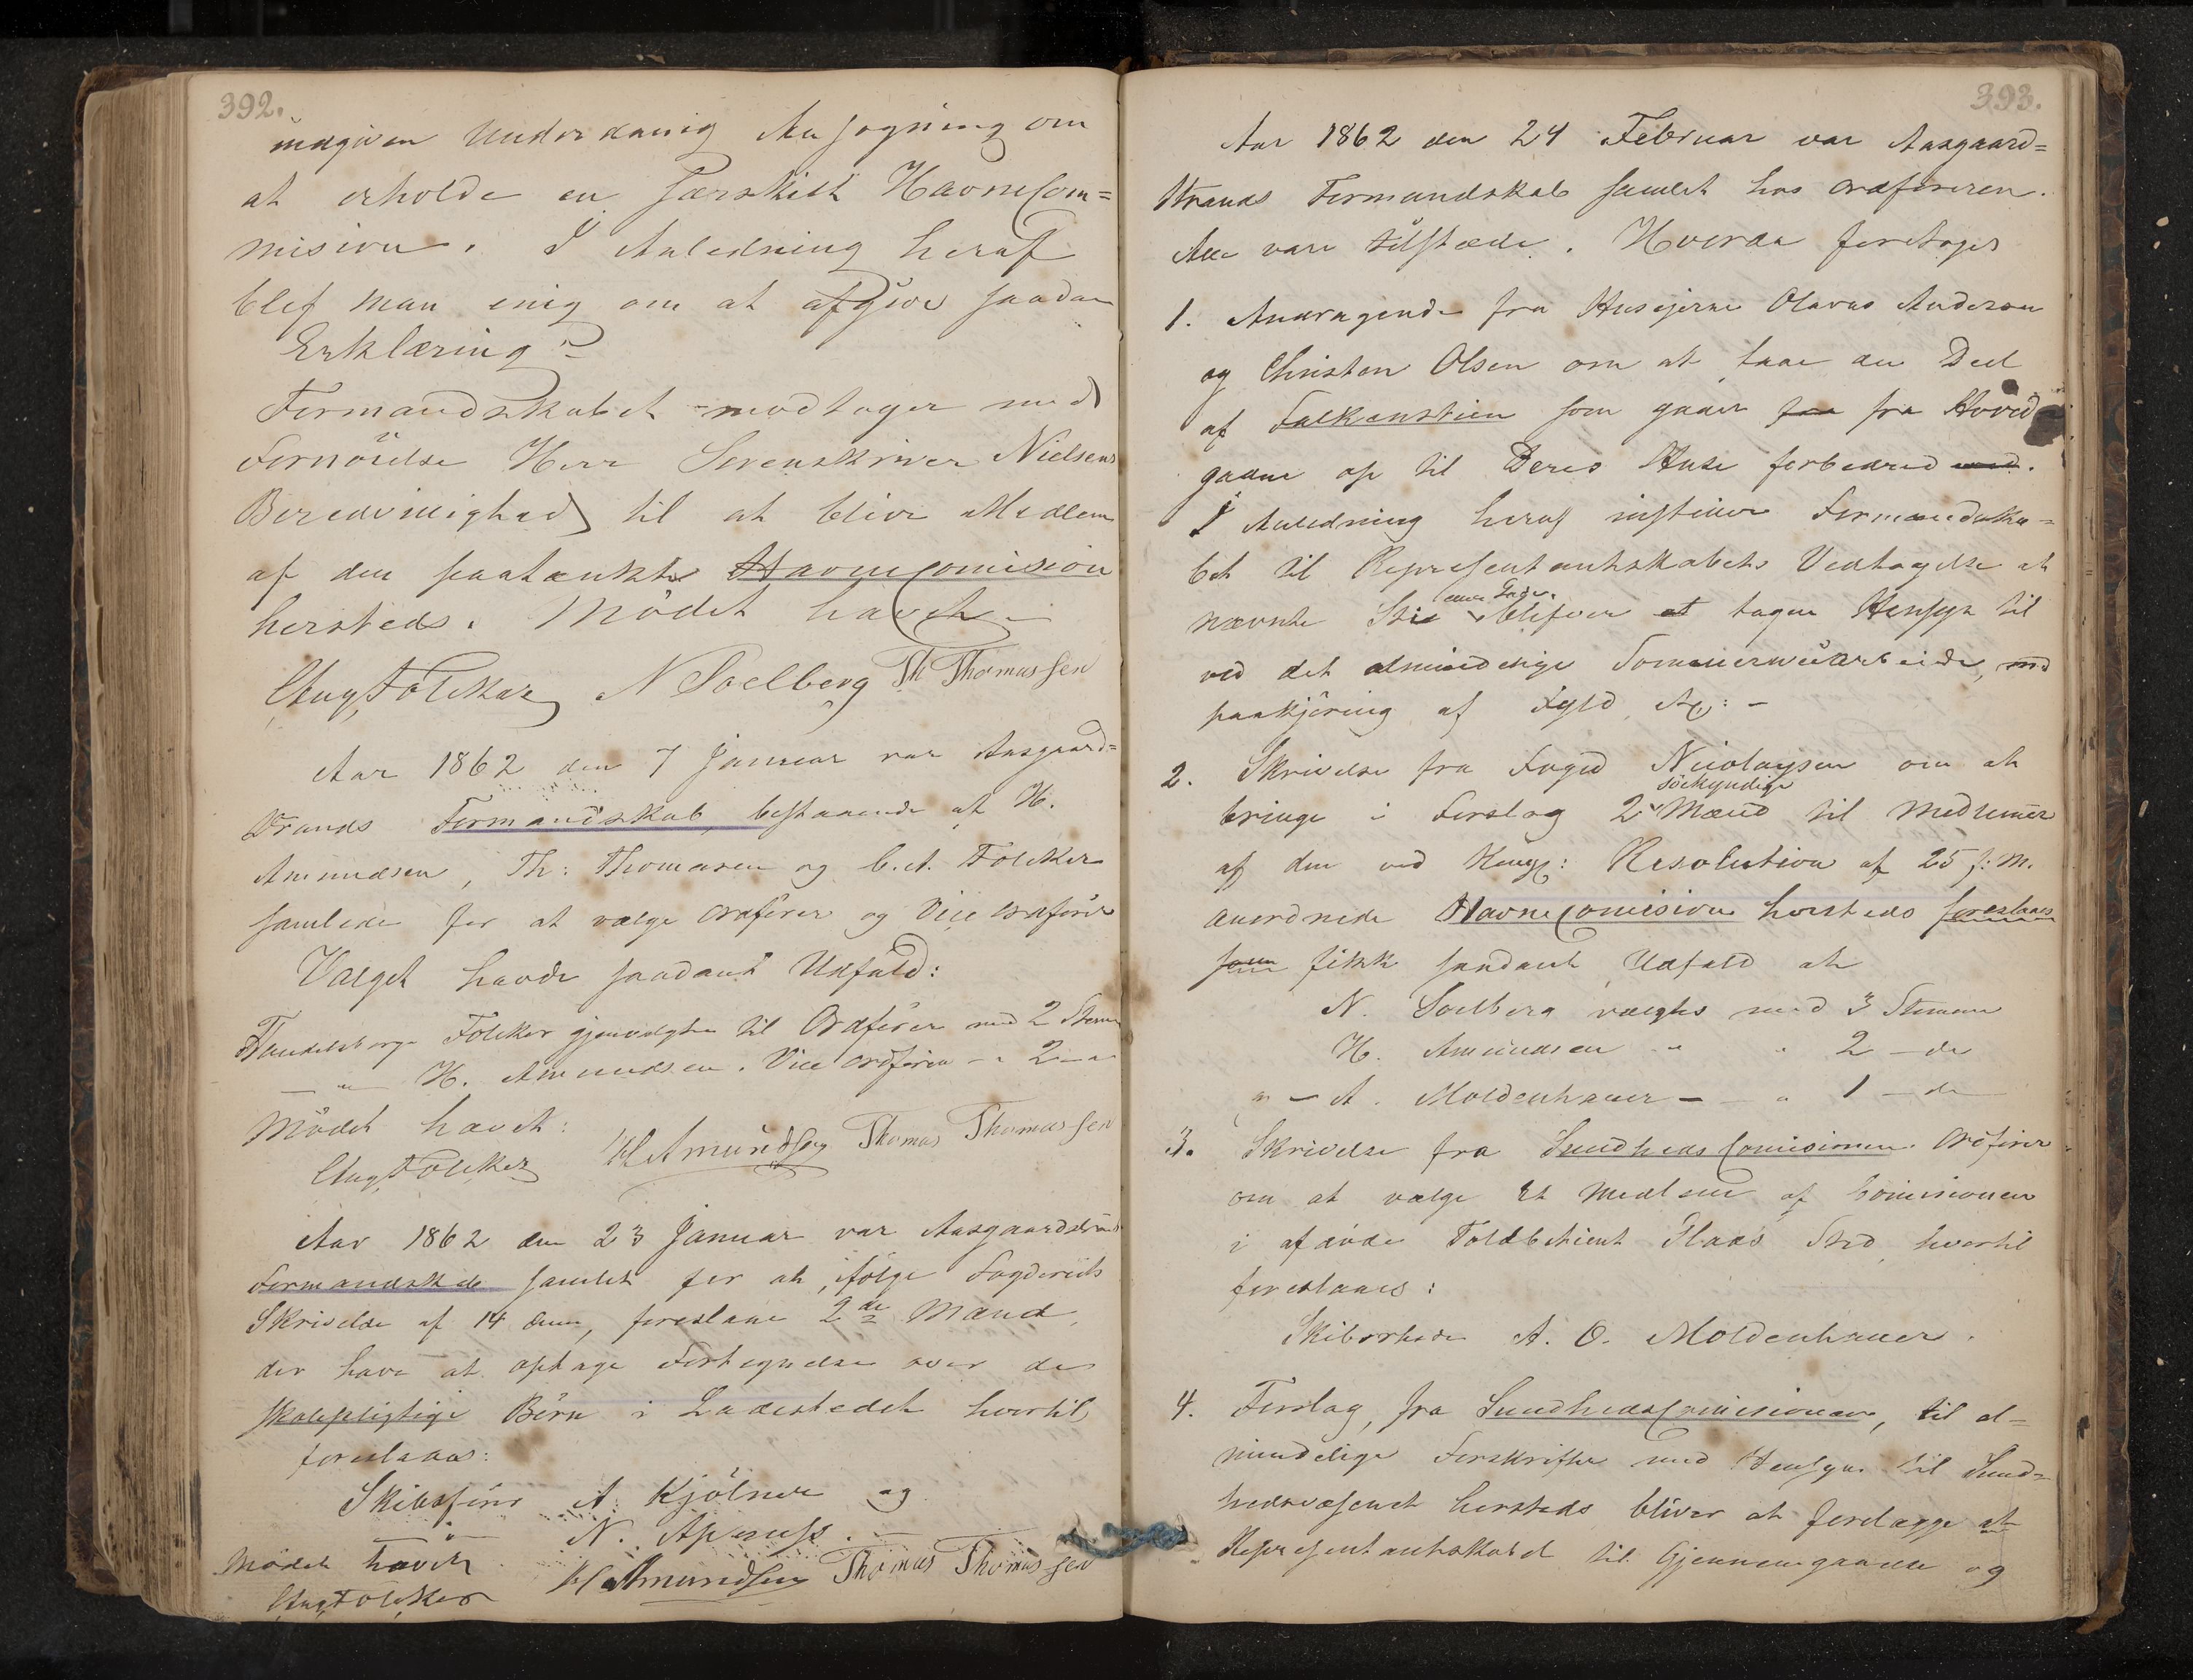 392.
indgiven Underdanig Ansøgning om
at erholde en særskilt Havnecom=
mision. I Anledning heraf
blef man enig om at afgive saadan
Erklæring:
Formandskabet modtager med
Fornöielse Herr Sorenskriver Nielsens
Beredvillighed til at blive Medlem
af den paatænkte Havnecomision
hersteds. Mödet hævet
Aug Fölcker N Soelberg Th Thomassen
Aar 1862 den 7 Januar var Aasgaard=
strands Formandskab, bestaaende af H.
Amundsen, Th: Thomasen og C. A. Fölcker
samlede for at vælge Ordförer og Viceordförer
Valget havde saadant Udfald:
Handelsborger Fölcker gjenvalgtes til Ordförer med 2 Stemmer
— " — H. Amundsen. Vice Ordförer — " 2 — "
Mödet hævet:
Aug Fölcker H Amundsen Thomas Thomassen
Aar 1862 den 23 Januar var Aasgaardstrands
Formandskab samlet for at, ifölge Fogderiets
Skrivelse af 14 dennes, foreslaae 2de Mænd,
der have at optage Fortegnelse over de
skolepligtige Börn i Ladestedet hvortil
foreslaaes:
Skibsförer A. Kjölner og
— " — N.
Mödet hævet
Aug Fölcker H Amundsen Thomas Thomassen
393.
Aar 1862 den 24 Februar var Aasgaard=
strands Formandskab samlet hos Ordföreren.
Alle vare tilstæde. Hvorda foretoges
1. Andragende fra Huseierne Olavus Anderson
og Christen Olsen om at faae en Deel
af Falkenstien som gaaer fra fra Hoved
gaden op til Deres Huse forbedred med.
I Anledning heraf instiller Formandska=
bet til Repræsentantskabets Vedtagelse at
nævnte Stie eller Gade. blifver at tagen Hensyn til
ved det almindelige Sommerveiarbeide, med
paakjöring af Fyld &c: -
2. Skrivelse fra Foged Nicolaysen om at
bringe i Forslag 2 söekyndige Mænd til Medlemer
af den ved Kongl: Resolution af 25 f: M.
anordnede Havnecomision hersteds foreslaaes
som fikk saadant Udfald at
N. Soelberg valgtes med 3 Stemmer
H. Amundsen " " 2 - do
" - A. Moldenhauer - - " 1 - do
3. Skrivelse fra Sundhedscomisionens Ordförer
om at vælge et Medlem af Comisionen
i afdöde Toldbetient Claas Sted, hvortil
foreslaaes:
Skibsrheder A. O. Moldenhauer.
4. Forslag, fra Sundhedscomisionen, til al=
mindelige Forskrifter med Hensyn til Sund=
hedsvæsenet hersteds bliver at forelægge at
Repræsentantskabet til Gjennemgaaelse og